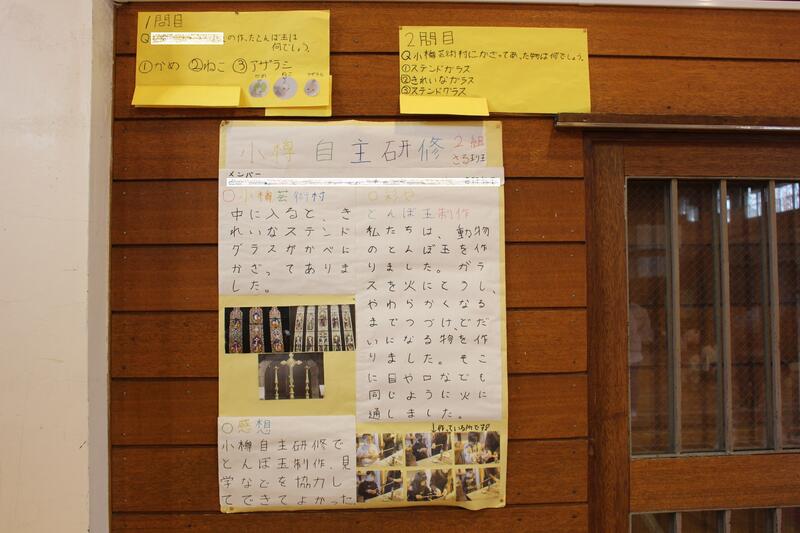 1問目
Q の作ったとんぼ玉は
何でしょう。
①かめ ②ねこ ③アザラシ
かめ ねこ アザラシ
2問目
Q小樽芸術村にかざってあった物は何でしょう。
①ステンドガラス
②きれいなガラス
③ステンドグラス
小樽 自主研修 2組
さる班
メンバー
○小樽芸術村
中に入ると、き
れいなステンド
グラスがかべに
かざってありま
した。
○感想
小樽自主研修で
とんぼ玉制作、見
学などを協力し
てできてよかった。
とんぼ玉制作
私たちは、動物
のとんぼ玉を作
りました。ガラ
スを火にとうし、
やわらかくなる
までつづけ、どだ
いになる物を作
りました。そこ
に目や口なども
同じように火に
通しました。
↓作っている所です